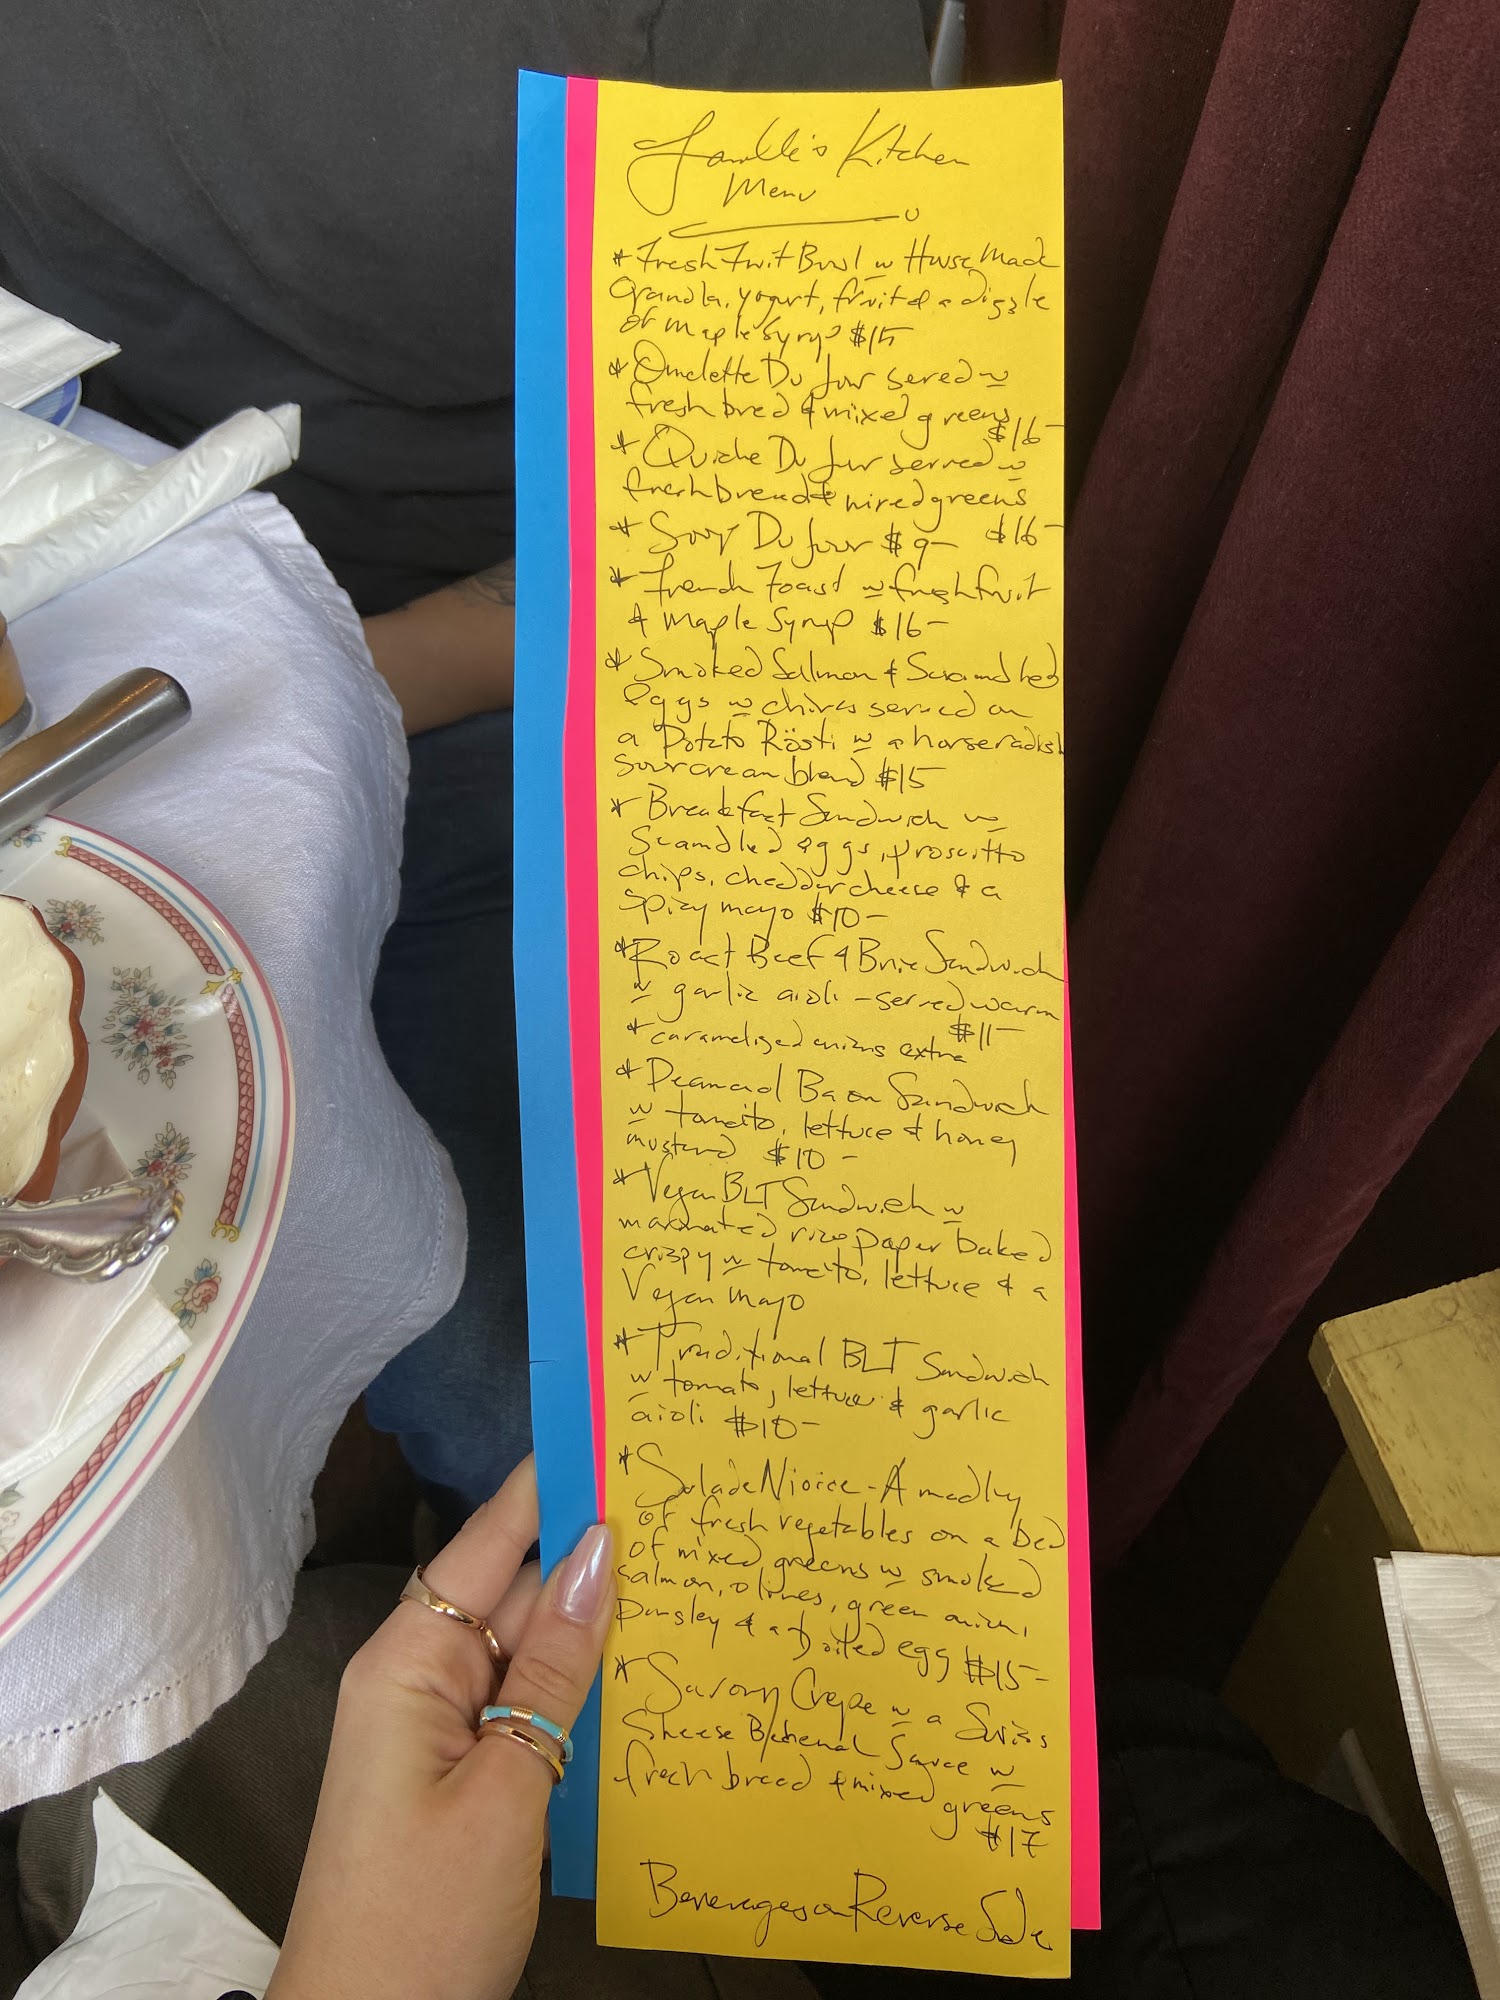 Kitchen
Menu
* Fresh Fruit Bowl w House Made
Granola, yogurt, fruit & a dizzle
of maple Syrup $15
* Omelette Du Jour served w
fresh bred & mixed greens
$16-
* Quiche Du Jour served w
fresh bread & mixed greens
$16-
* Soup Du Jour $9-
* French Toast w fresh fruit
& Maple Syrup $16-
* Smoked Salmon & Scrambled
eggs w chives served on
a Potato Rösti w a horseradish
sour cream blend $15
* Breakfast Sandwich w
Scambled eggs, proscitto
chips, cheddar cheese & a
Spicy mayo $10-
* Roast Beef & Brie Sandwich
w garlic aioli - served warm
$11-
* caramelized onions extra
* Peameal Bacon Sandwich
w tomato, lettuce & honey
mustard $10-
* Vegan BLT Sandwich w
marinated rice paper baked
crispy w tomato, lettuce & a
Vegan mayo
* Traditional BLT Sandwich
w tomato, lettuce & garlic
aioli $10-
* Salade Nicoice - A medley
of fresh vegetables on a bed
of mixed greens w smoked
salmon, olives, green onion,
parsley & a boiled egg $15-
* Savory Crepe w a Swiss
Cheese Bechemal Sauce w
fresh bread & mixed greens
$17
Beverages on Reverse Side